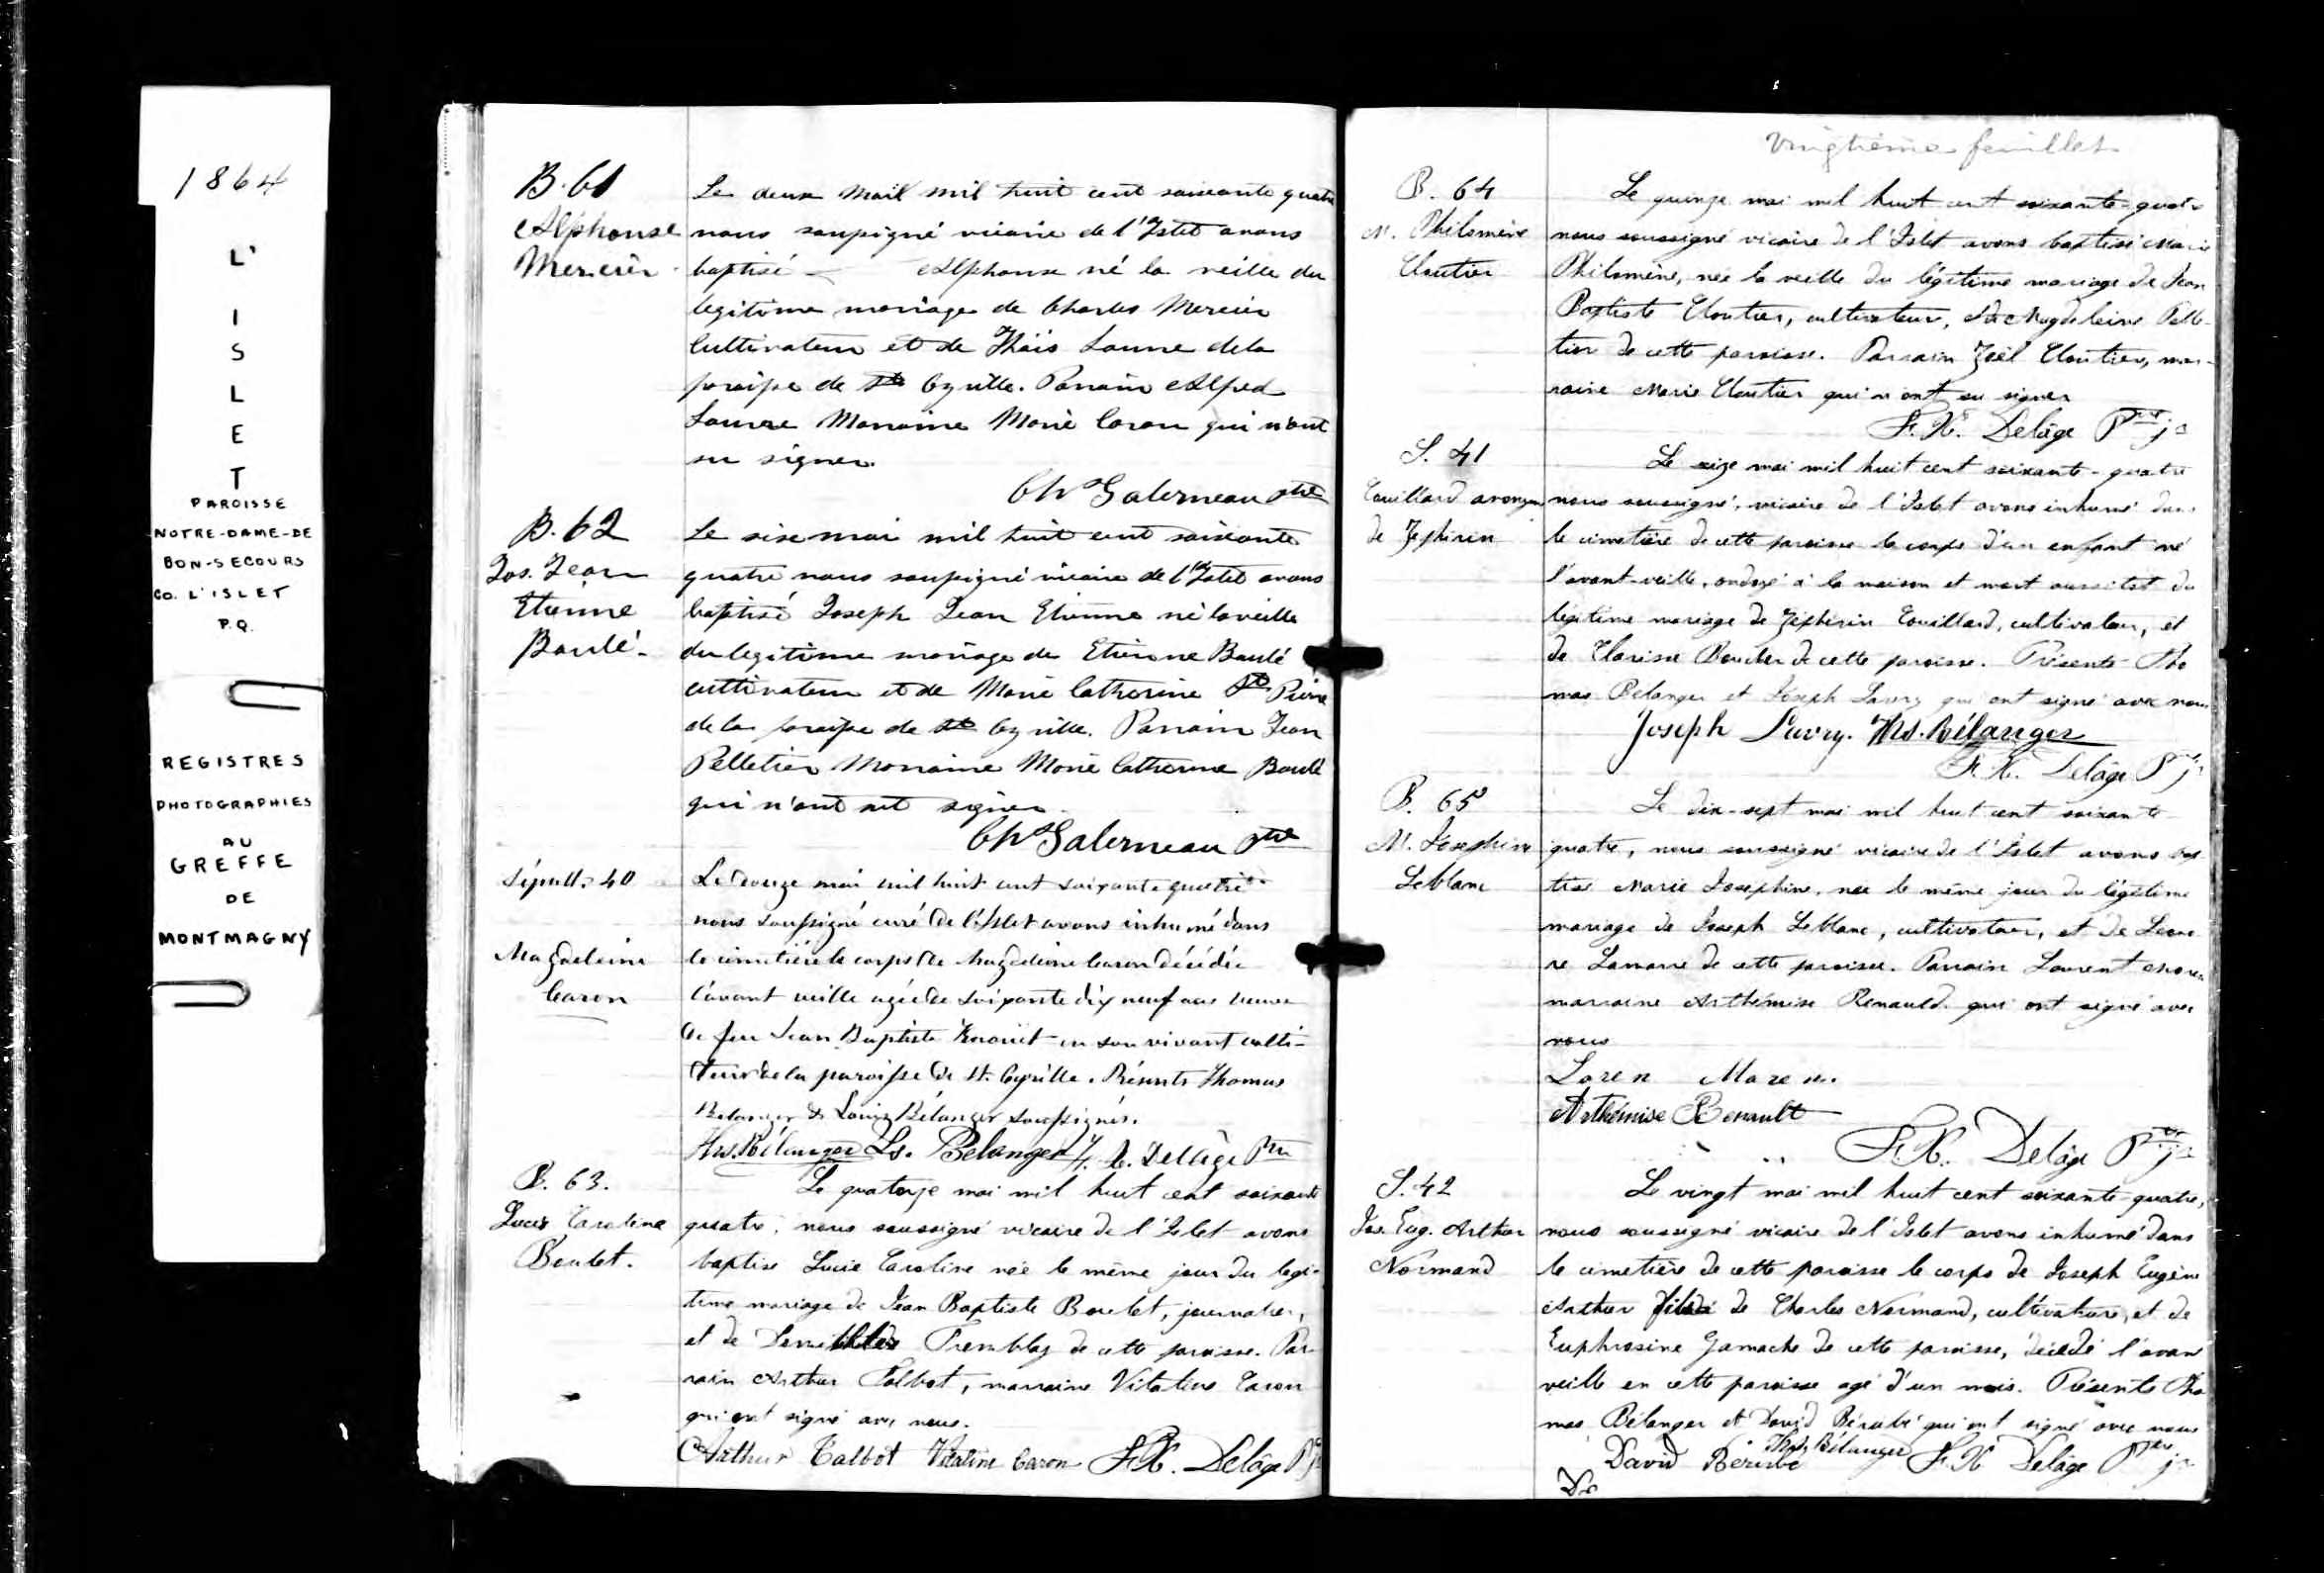 1864
L'
I
S
L
E
T
PAROISSE
NOTRE-DAME-DE
BON-SECOURS
CO. L'ISLET
P.Q.
REGISTRES
PHOTOGRAPHIES
AU
GREFFE
DE
MONTMAGNY
B. 61
Alphonse
Mercier
Le deux Mail mil huit cent soixante quatre
nous soussigné vicaire de l'Islet avons
baptisé Alphonse né la veille du
legitime mariage de Charles Mercier
Cultivateur et de Thaïs dela
paroisse de St Cyrille. Parrain Alfred
Marraine Marie Caron qui n'ont
su signer.
Chs Galerneau ptre
B. 62
Jos. Jean
Etienne
Baulé
Le six mai mil huit cent soixante
quatre nous soussigné vicaire de l'Islet avons
baptisé Joseph Jean Etienne né la veille
du legitime mariage de Etienne Baulé
cultivateur et de Marie Catherine St Pierre
de la paroisse de St Cyrille. Parrain Jean
Pelletier Marraine Marie Catherine Baulé
qui n'ont sut signer.
Chs Galerneau ptre
Sépult. 40
Magdeleine
Caron
Le douze mai mil huit cent soixante quatre
nous soussigné curé de l'Islet avons inhumé dans
le cimetière le corps de Magdeleine Caron décédée
l'avant veille agée de soixante dix neuf ans veuve
de feu Jean Baptiste en son vivant culti-
teur de la paroisse de St. Cyrille. Présents Thomas
Belanger & Louis Bélanger soussignés.
Ths. Bélanger Ls. Belanger F. X. Delâge Ptre
B. 63.
Lucie Caroline
Boulet.
Le quatorze mai mil huit cent soixante
quatre, nous soussigné vicaire de l'Islet avons
baptise Lucie Caroline née le même jour du legi-
time mariage de Jean Baptiste Boulet, journalier,
et de Tremblay de cette paroisse. Par-
rain Arthur Talbot, marraine Vitaline Caron
qui ont signé avec nous.
Arthur Talbot Vitaline Caron F. X. Delâge Ptre
vingtième feuillet
B. 64
M. Philomène
Cloutier
Le quinze mai mil huit cent soixante-quatre
nous soussigné vicaire de l'Islet avons baptisé Marie
Philomène, née la veille du légitime mariage de Jean
Baptiste Cloutier, cultivateur, et de Magdeleine Pelle-
tier de cette paroisse. Parrain Joël Cloutier, mar-
raine Marie Cloutier qui n'ont su signer
F. X. Delâge Ptre jr
S. 41
Couillard anonyme
de Zephirin
Le seize mai mil huit cent soixante-quatre
nous soussigné, vicaire de l'Islet avons inhumé dans
le cimetière de cette paroisse le corps d'un enfant né
l'avant-veille, ondoyé à la maison et mort aussitot du
légitime mariage de Zéphirin Couillard, cultivateur, et
de Clarisse de cette paroisse. Présents Tho
mas Bélanger et Joseph Lavry qui ont signé avec nous
Joseph Lavry. Ths. Bélanger
F. X. Delâge Ptre jr
B. 65
M. Josephine
Leblanc
Le dix-sept mai mil huit cent soixante
quatre, nous soussigné vicaire de l'Islet avons bap
tisé Marie Joséphine, née le même jour du légitime
mariage de Joseph Leblanc, cultivateur, et de
de cette paroisse. Parrain Laurent
marraine Arthémise Renauld qui ont signé avec
nous
Loren
Arthémise Renault
F. X. Delâge Ptre jr
S. 42
Jos. Eug. Arthur
Normand
Le vingt mai mil huit cent soixante-quatre,
nous soussigné vicaire de l'Islet avons inhumé dans
le cimetière de cette paroisse le corps de Joseph Eugène
Arthur de Charles Normand, cultivateur, et de
Euphrosine Gamache de cette paroisse, décédé l'avant
veille en cette paroisse agé d'un mois. Présents Tho
mas Bélanger et David Bérubé qui ont signé avec nous
David Bérubé Ths. Bélanger F. X. Delâge Ptre jr